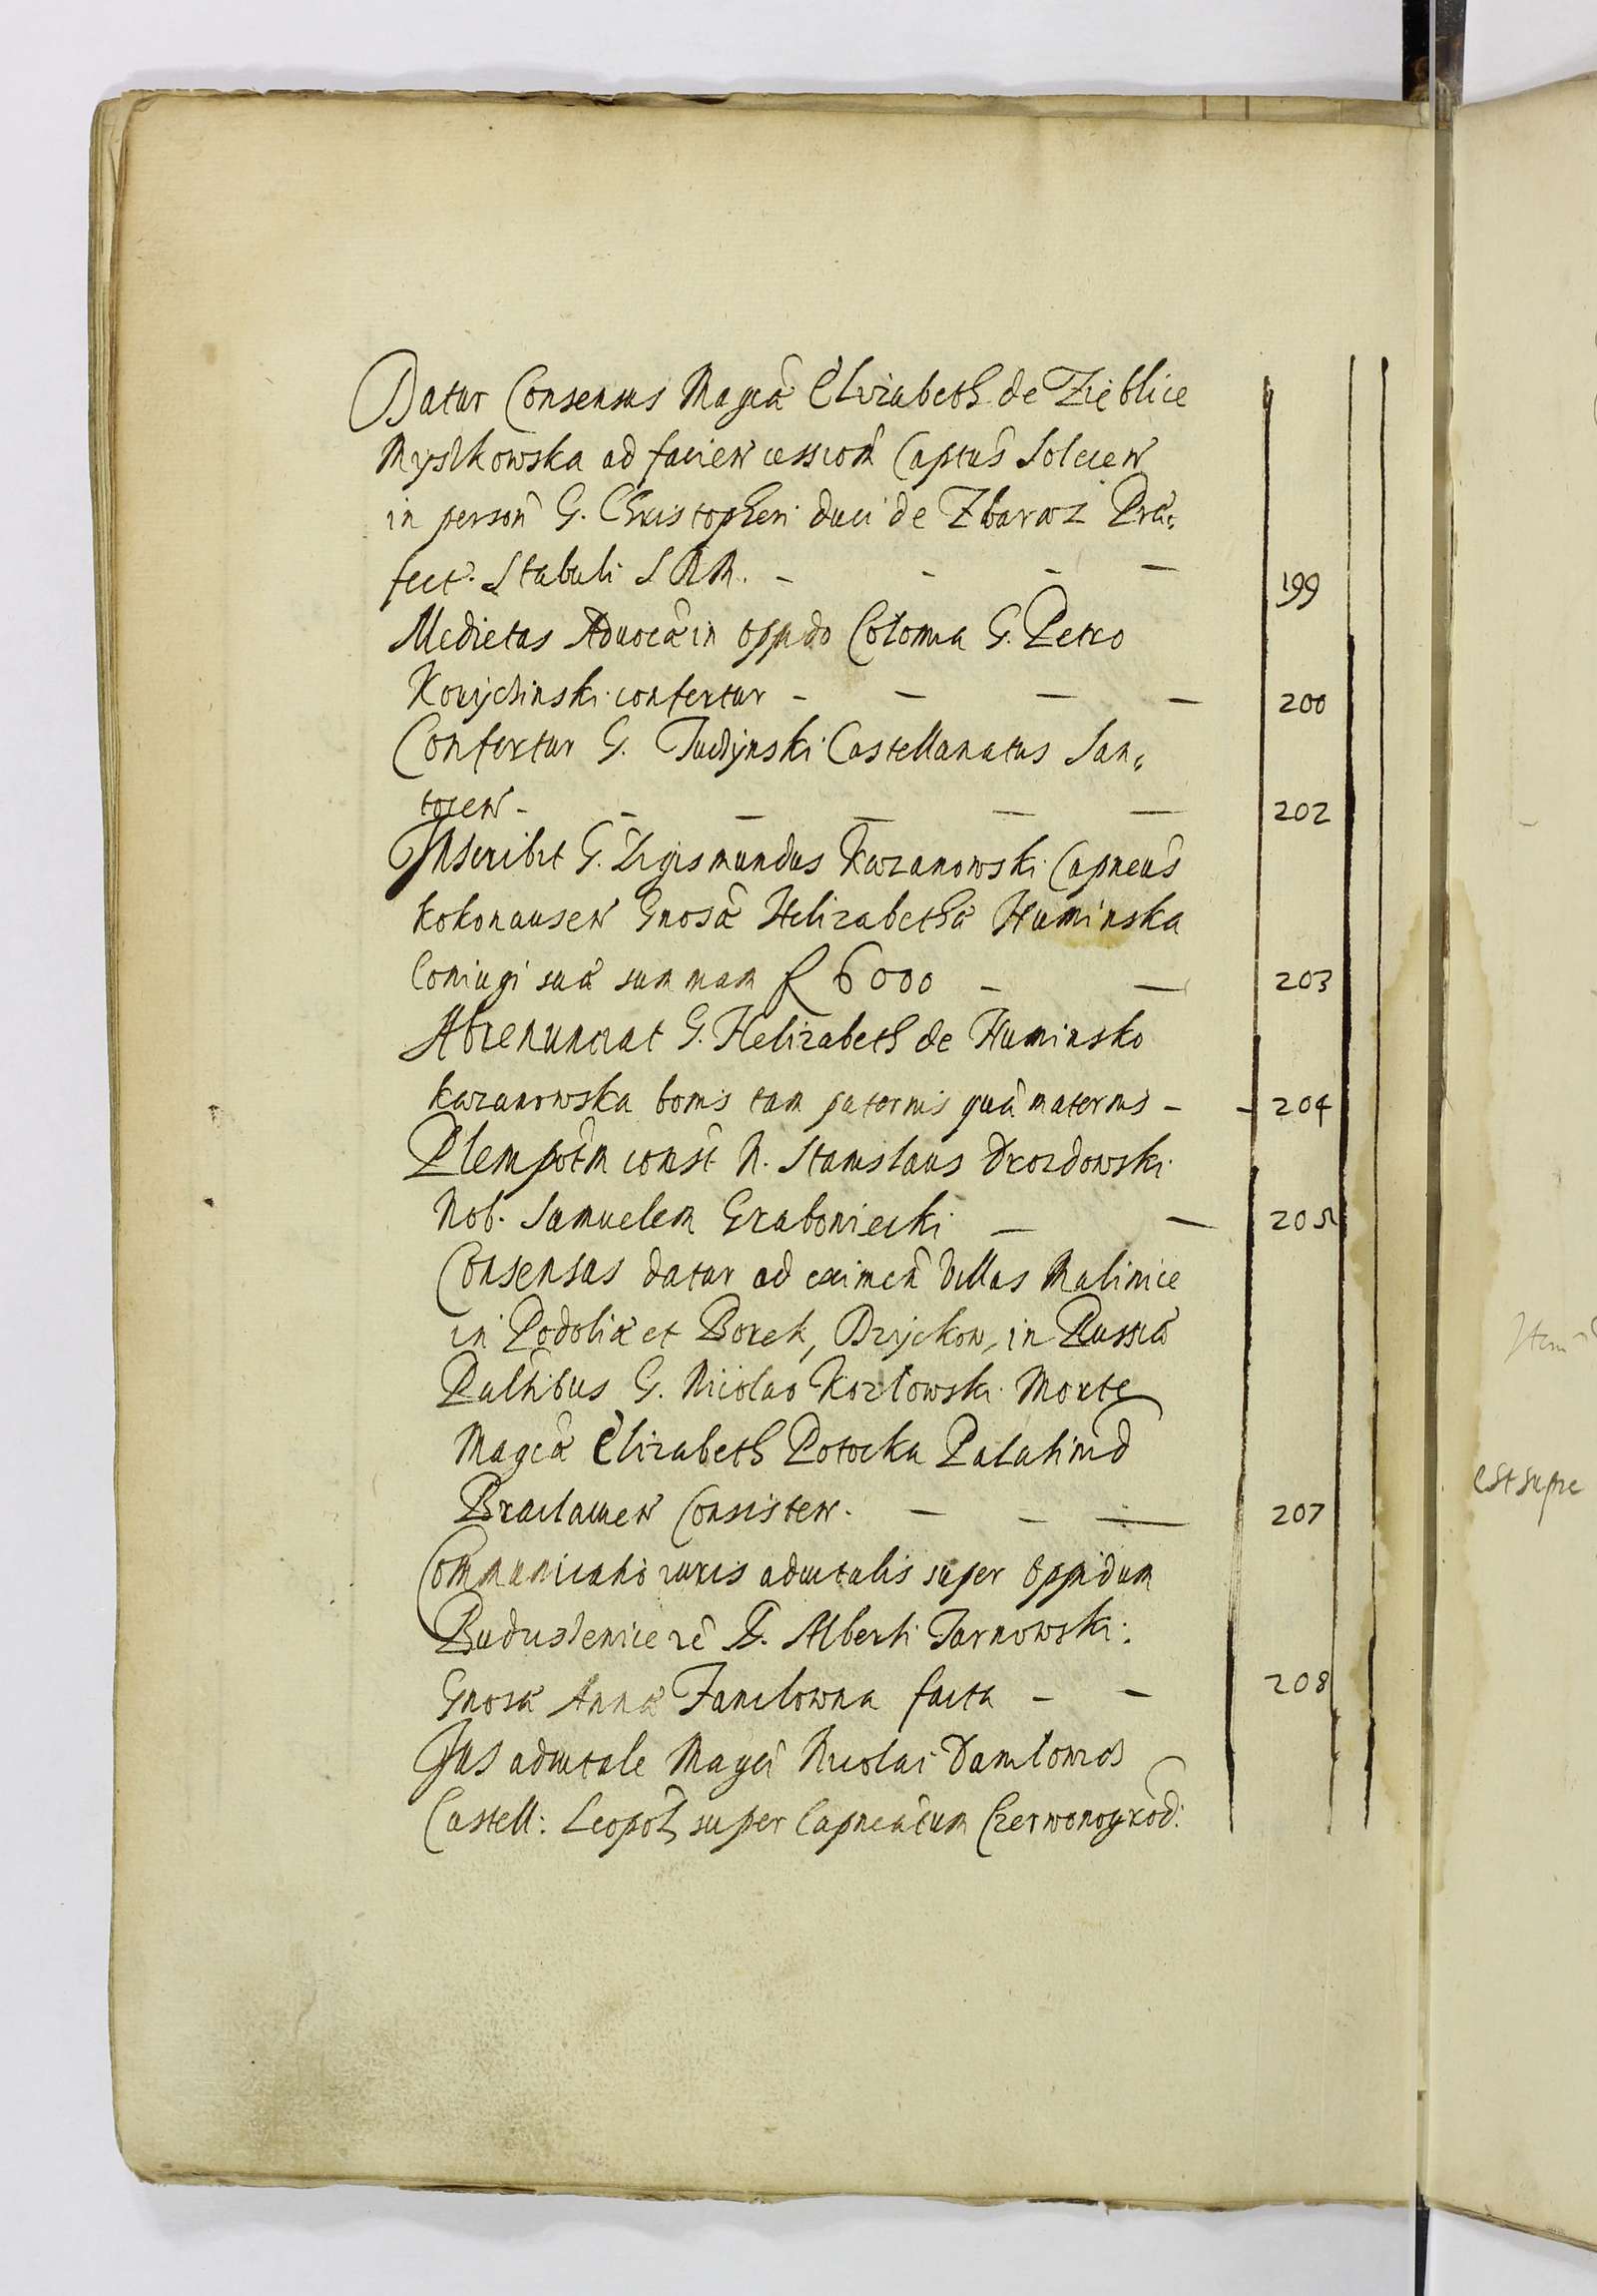 Datur Consensus Magcæ Elizabeth de Zięblice
Myszkowska ad facien cession Captus Solecen
in person G. Christopheri duci de Zbaraz Præ,
fect. Stabuli S R M. - - - - 199
Medietas Advocâ in oppido Colomia G. Petro
confertur - - - - 200
Confertur G. Castellanatus San,
tocen - - - - - - 202
Inscribit G. Sigismundus Kazanowski Capneus
Kokonausen Gnosæ Helizabethæ Huminska
Coniugi suæ summam f 6000 - - 203
Abrenunciat G. Helizabeth de Huminsko
Kazanowska bonis tam paternis quâ maternis - - 204
Plenipotm const N. Stanislaus Drozdowski
Nob. Samuelem Graboniecki - - 205
Consensus datur ad eximen villas Malinice
in Podoliæ et Borek, Dzyckow, in Russiæ
Palhibus G. Nicolao Kozlowski Morte
Magcæ Elizabeth Potocka Palatinid
Braclauien Consisten. - - - 207
Communicatio iuris aduitalis super oppidum
G. Alberti Tarnowski.
Gnosæ Annæ facta - - 208
Jus aduitale Magci Nicolai Danilowicz
Castell: Leopol super Capneatum Czerwonogrod:
Item
est supre